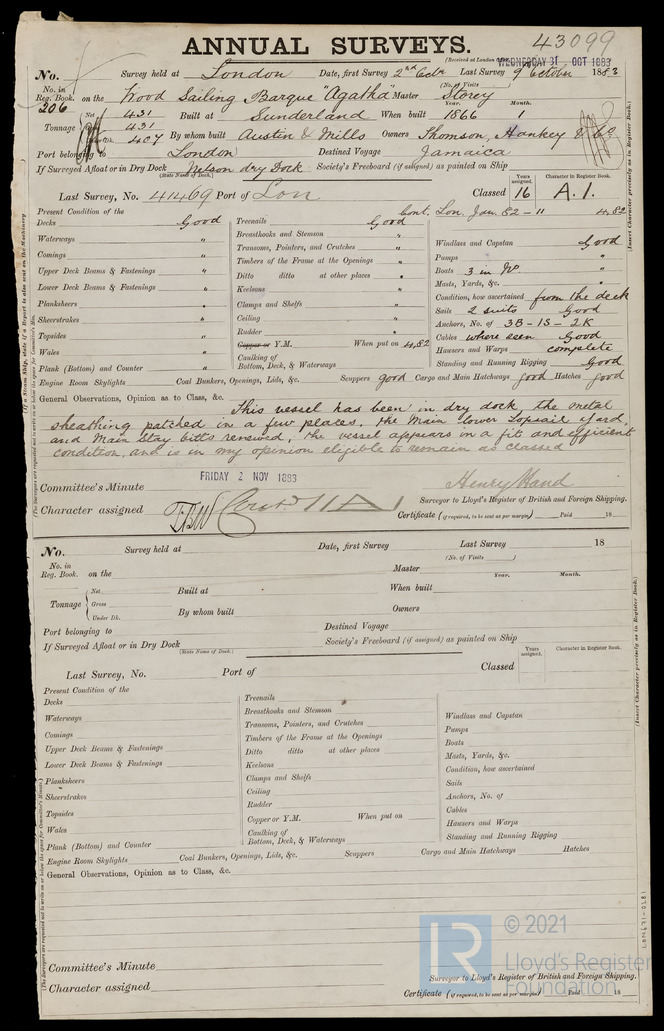 43099
ANNUAL SURVEYS.
(Received at London Office WEDNESDAY 31 OCT 1883
No. Survey held at London Date, first Survey 2nd Octbr Last Survey 9 October 1883
(No. of Visits )
No. in Reg. Book. 206 on the Wood Sailing Barque "Agatha" Master Storey
Year. Month.
Tonnage Net 431 Built at Sunderland When built 1866 1
431
Under Dk. 407 By whom built Austin & Mills Owners Thomson, Hankey & Co
Port belonging to London Destined Voyage Jamaica
If Surveyed Afloat or in Dry Dock Nelson dry Dock Society's Freeboard (if assigned) as painted on Ship
(State Name of Dock.)
Years assigned. Character in Register Book.
Last Survey, No. 41469 Port of Lon Classed 16 A.1.
Cont. Lon. Jan. 82-11 4,82
Present Condition of the
Decks Good Treenails Good
Waterways " Breasthooks and Stemson " Windlass and Capstan Good
Comings " Transoms, Pointers, and Crutches " Pumps "
Upper Deck Beams & Fastenings " Timbers of the Frame at the Openings " Boats 3 in No. "
Lower Deck Beams & Fastenings " Ditto ditto at other places " Masts, Yards, &c. "
Planksheers " Keelsons " Condition, how ascertained from the deck
Sheerstrakes " Clamps and Shelfs " Sails 2 suits Good
Topsides " Ceiling " Anchors, No. of 3B-1S-2K
Wales " Rudder " Cables where seen Good
Plank (Bottom) and Counter " Copper or Y.M. When put on 4,82 Hawsers and Warps complete
Caulking of Bottom, Deck, & Waterways Standing and Running Rigging Good
Engine Room Skylights Coal Bunkers, Openings, Lids, &c. Scuppers good Cargo and Main Hatchways good Hatches good
General Observations, Opinion as to Class, &c. This vessel has been in dry dock the metal
sheathing patched in a few places, the Main lower topsail yard,
and Main Stay bitts renewed, the vessel appears in a fit and efficient
condition, and is in my opinion eligible to remain as classed
FRIDAY 2 NOV 1883
Committee's Minute Henry Hand
Surveyor to Lloyd's Register of British and Foreign Shipping.
Character assigned
Certificate (if required, to be sent as per margin) Paid 18
No. Survey held at Date, first Survey Last Survey 18
(No. of Visits )
No. in Reg. Book. on the Master
Year. Month.
Tonnage Net Built at When built
Gross
Under Dk. By whom built Owners
Port belonging to Destined Voyage
If Surveyed Afloat or in Dry Dock Society's Freeboard (if assigned) as painted on Ship
(State Name of Dock.)
Years assigned. Character in Register Book.
Last Survey, No. Port of Classed
Present Condition of the
Decks Treenails
Waterways Breasthooks and Stemson Windlass and Capstan
Comings Transoms, Pointers, and Crutches Pumps
Upper Deck Beams & Fastenings Timbers of the Frame at the Openings Boats
Lower Deck Beams & Fastenings Ditto ditto at other places Masts, Yards, &c.
Planksheers Keelsons Condition, how ascertained
Sheerstrakes Clamps and Shelfs Sails
Topsides Ceiling Anchors, No. of
Wales Rudder Cables
Plank (Bottom) and Counter Copper or Y.M. When put on Hawsers and Warps
Caulking of Bottom, Deck, & Waterways Standing and Running Rigging
Engine Room Skylights Coal Bunkers, Openings, Lids, &c. Scuppers Cargo and Main Hatchways Hatches
General Observations, Opinion as to Class, &c.
Committee's Minute
Surveyor to Lloyd's Register of British and Foreign Shipping.
Character assigned
Certificate (if required, to be sent as per margin) Paid 18
(Insert Character precisely as in Register Book.)
(Insert Character precisely as in Register Book.)
LR © 2021
Lloyd's Register
Foundation